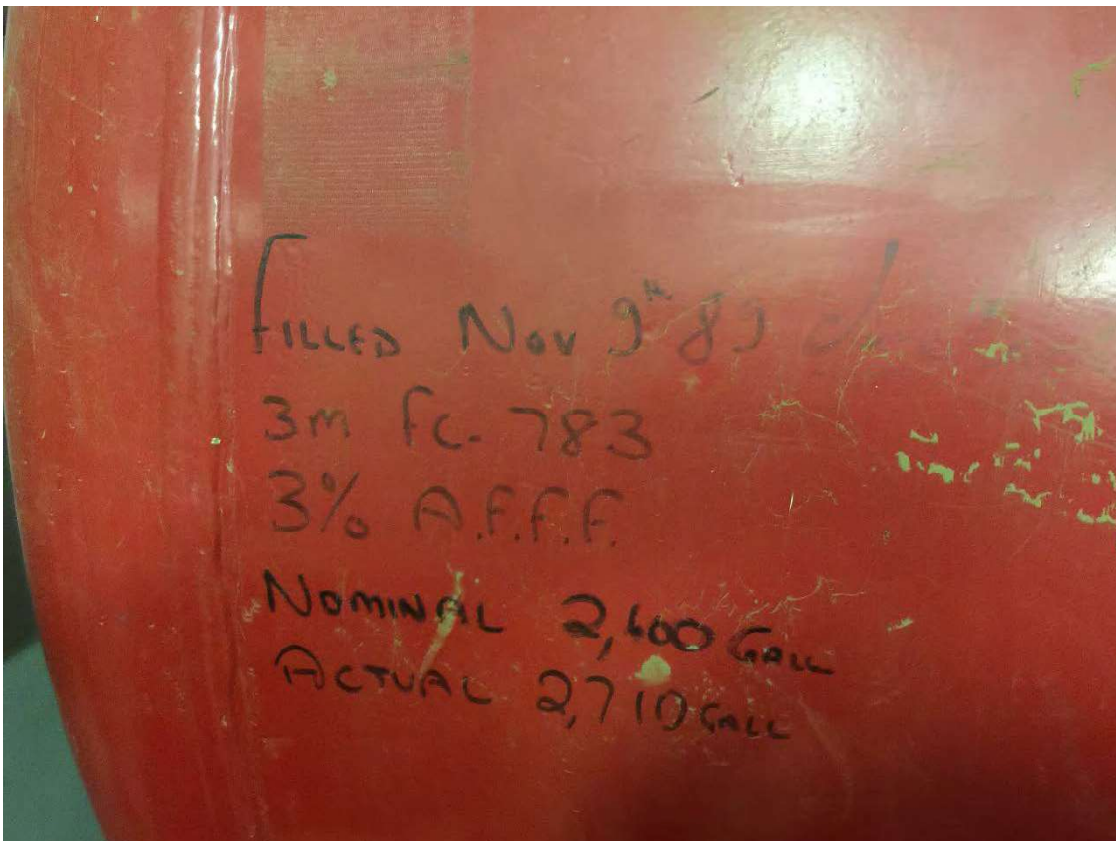 FILLED Nov 9th 89
3m fc. 783
3% A.F.F.F.
NOMINAL 2,600 GALL
ACTUAL 2,710 GALL